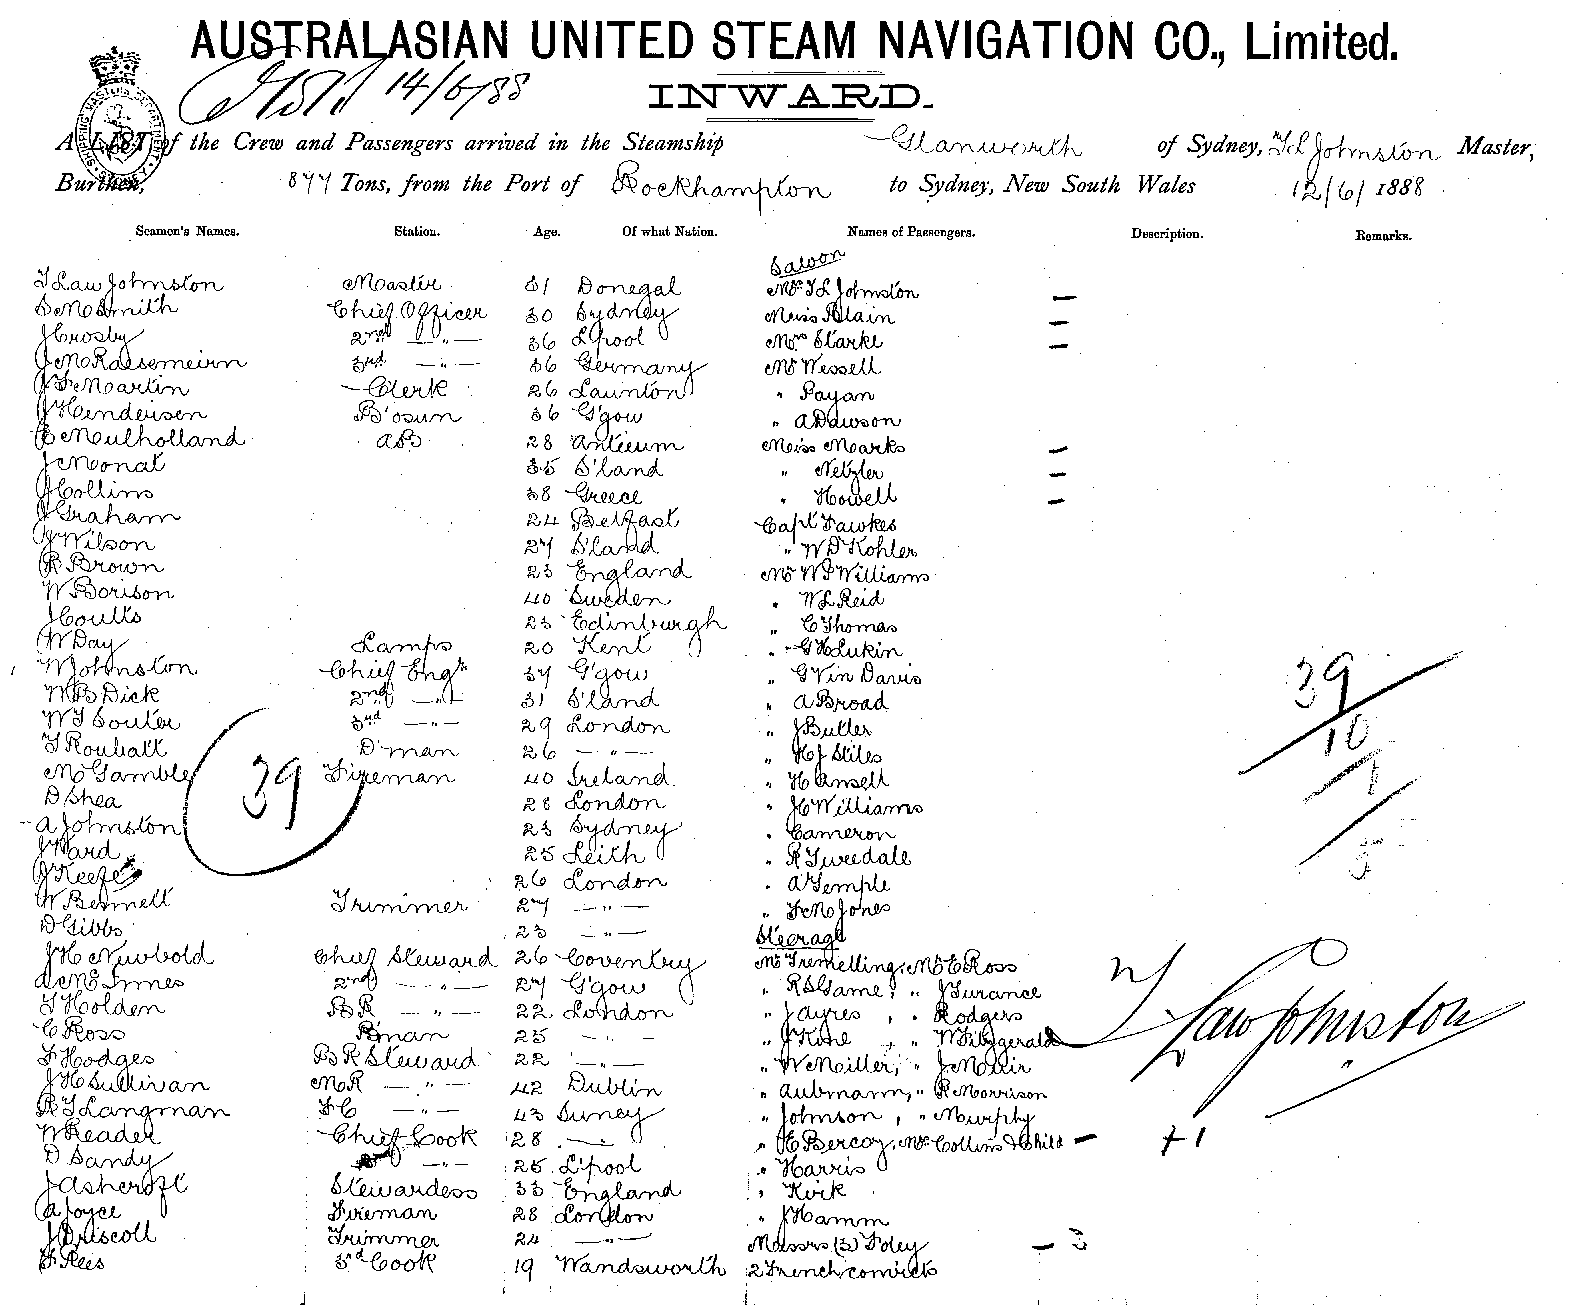 AUSTRALASIAN UNITED STEAM NAVIGATION CO., Limited.
14/6/88
INWARD.
A LIST of the Crew and Passengers arrived in the Steamship Glanworth of Sydney, T L Johnston Master,
Burthen, 877 Tons, from the Port of Rockhampton to Sydney, New South Wales 12/6/1888
Seamen's Names. Station. Age. Of what Nation. Names of Passengers. Description. Remarks.
Saloon
T Law Johnston Master 31 Donegal Mrs T L Johnston —
S M Smith Chief Officer 30 Sydney Miss Blain —
J Crosby 2nd — " — 36 L'pool Mrs Starke —
J M Rassemeirn 3rd — " — 36 Germany Mr Wessell
J F Martin Clerk 26 Launton " Payan
J Henderson B'osun 36 G'gow " A Dawson
B Mulholland AB 28 Antrium Miss Marks —
J Monat 35 S'land " Netzler —
J Collins 38 Greece " Howell —
J Graham 24 Belfast Capt Fawkes
J Wilson 27 S'land " W D Kohler
R Brown 23 England Mr W P Williams
W Borison 40 Sweden " W L Reid
J Coults 23 Edinburgh " C Thomas
W Day Lamps 20 Kent " G H Lukin
W Johnston Chief Engr 37 G'gow " G Vin Davis
W B Dick 2nd — " — 31 S'land " A Broad
W T Souter 3rd — " — 29 London " J Butler
T Roubatt D'man 26 — " — " H J Stiles
M Gamble Fireman 40 Ireland " H Ansell
D Shea 28 London " J C Williams
A Johnston 23 Sydney " Cameron
J Ward 25 Leith " R Tweedale
J Keefe 26 London " A Temple
W Bennett Trimmer 27 — " — " F M Jones
D Gibbs 23 — " —
Steerage
J H Newbold Chief Steward 26 Coventry Mr Tremelling, Mr C Ross
A McInnes 2nd — " — 27 G'gow " R S Game, " J Turance
T Holden BR — " — 22 London " J Ayres, " Rodgers
C Ross P'man 25 — " — " J Kine, " W Fitzgerald
F Hodges BR Steward 22 — " — " W Miller, " J Muir
J H Sullivan MR — " — 42 Dublin " Aubmann, " R Morrison
R T Langman FC — " — 43 Surrey " Johnson, " Murphy
W Reader Chief Cook 28 — " — " E Bercoy, Mrs Collins & Child — + 1
D Sandy — " — 25 L'pool " Harris
J Ashcroft Stewardess 33 England " Kirk
A Joyce Fireman 28 London " J Hamm
J Driscoll Trimmer 24 — " — Messrs (3) Foley — 3
F Rees 3rd Cook 19 Wandsworth 2 French convicts
39
39
10
7
5
T Law Johnston